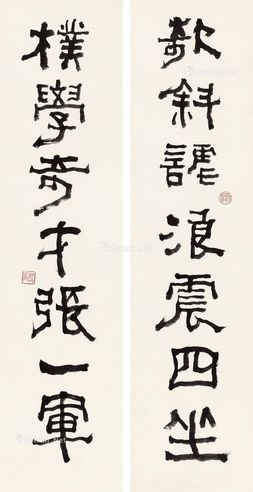 欹斜謔浪震四坐
樸學奇才張一軍